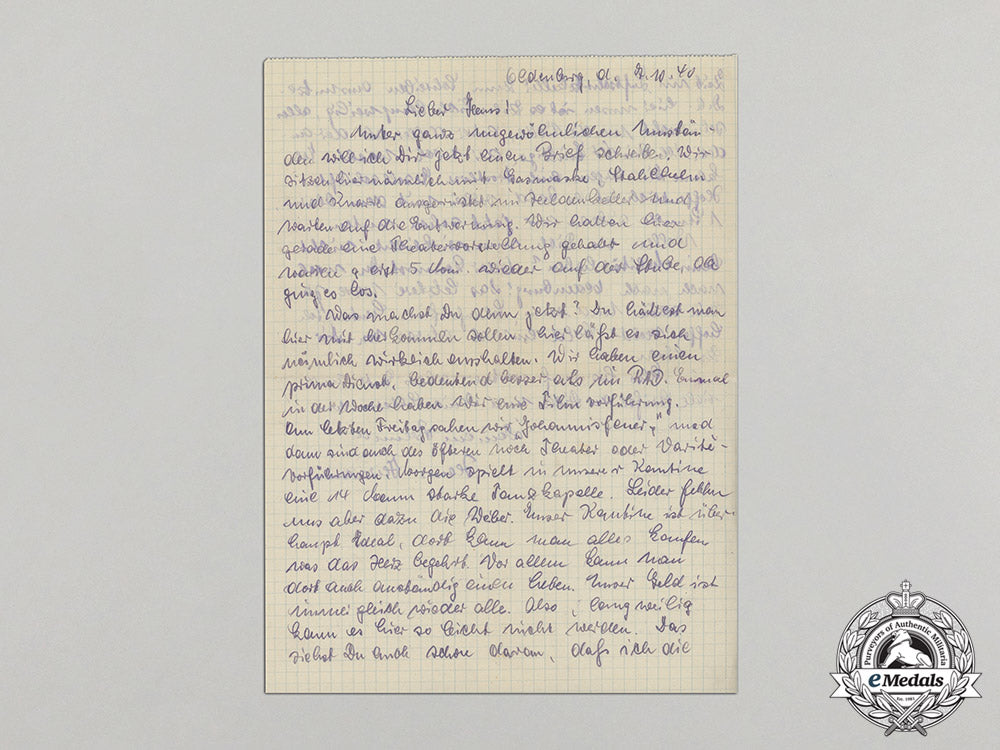 Oldenburg d. 2.10.40
Lieber Hans!
Unter ganz ungewöhnlichen Umstän-
den will ich Dir jetzt einen Brief schreiben. Wir
sitzen hier nämlich mit Gasmaske Stahlhelm
und ausgerüstet im Heldenkeller und
warten auf die Entwarnung. Wir hatten hier
gerade eine Theatervorstellung gehabt und
waren erst 5 Min. wieder auf der Stube, da
ging es los.
Was machst Du denn jetzt? Du hättest man
hier mit herkommen sollen hier läßt es sich
nämlich wirklich aushalten. Wir haben einen
prima Dienst, bedeutend besser als im RAD. Einmal
in der Woche haben wir eine Filmvorführung.
Am letzten Freitag sahen wir „Johannisfeuer“, und
dann sind auch des öfteren noch Theater oder Varité-
vorführungen. Morgen spielt in unserer Kantine
eine 14 Mann starke Tanzkapelle. Leider fehlen
uns aber dazu die Weiber. Unser Kantine ist über-
haupt Ideal, dort kann man alles kaufen
was das Herz begehrt. Vor allem kann man
dort auch anständig einen heben. Unser Geld ist
immer gleich wieder alle. Also, langweilig
kann es hier so leicht nicht werden. Das
siehst Du auch schon daran, daß ich die
Purveyors of Authentic Militaria
eMedals
Est. 1985